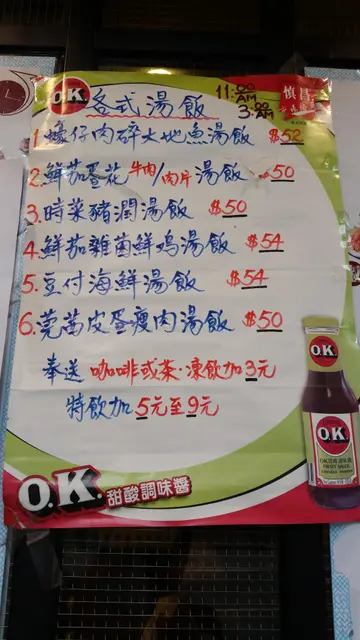 O.K. 各式湯飯 11:00 AM
3:00 AM
慎昌
1. 蠔仔肉碎大地魚湯飯 $52
2. 鮮茄蛋花牛肉/肉片湯飯 $50
3. 時菜豬潤湯飯 $50
4. 鮮茄雜菌鮮鸡湯飯 $54
5. 豆付海鮮湯飯 $54
6. 芫茜皮蛋瘦肉湯飯 $50
奉送 咖啡或茶·凍飲加3元
特飲加5元至9元
O.K.
O.K.
FRUIT SAUCE
O.K. 甜酸調味醬